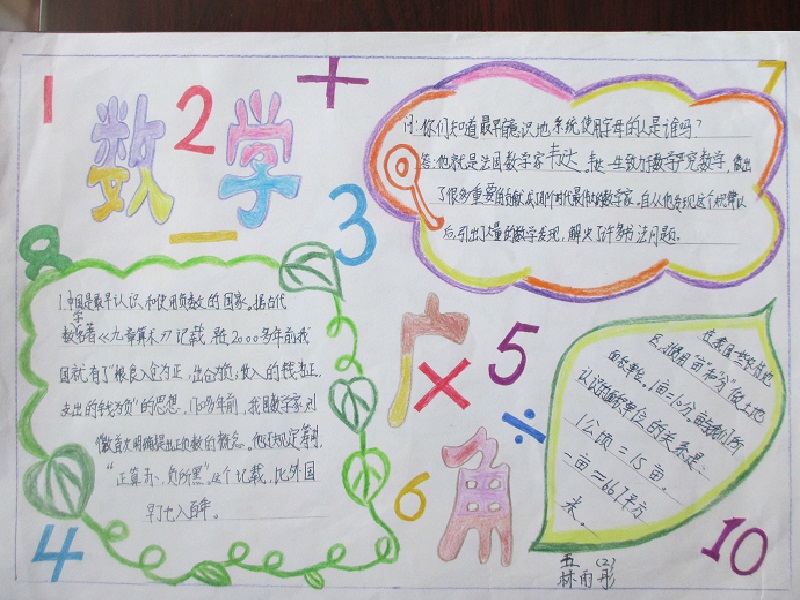 1
数学
2
+
7
3
8
4
−
问:你们知道最早有意识地系统使用字母的人是谁吗?
答:他就是法国数学家韦达。韦达一生致力于数学研究数学,做出
了很多重要的贡献,成为那个时代最伟大的数学家。自从他发现这个规律以
后,引出了大量的数学发现,解决了许多方法问题。
1.中国是最早认识和使用负数的国家。据古代
数学名著《九章算术》记载,距2000多年前我
国就有了“粮食入仓为正,出仓为负;收入的钱为正,
支出的钱为负”的思想。1700多年前,我国数学家刘
徽首次明确提出正负数的概念。他还规定筹别
“正算赤,负算黑”,这个记载,比外国
早了近八百年。
广角
×
5
÷
6
在我国一些农村地
区,使用“亩”和“分”做土地
面积单位。1亩=10分。
认识的面积单位的关系是:
1公顷=15亩。
一亩≈667平方
米。
10
五(2)
林雨彤